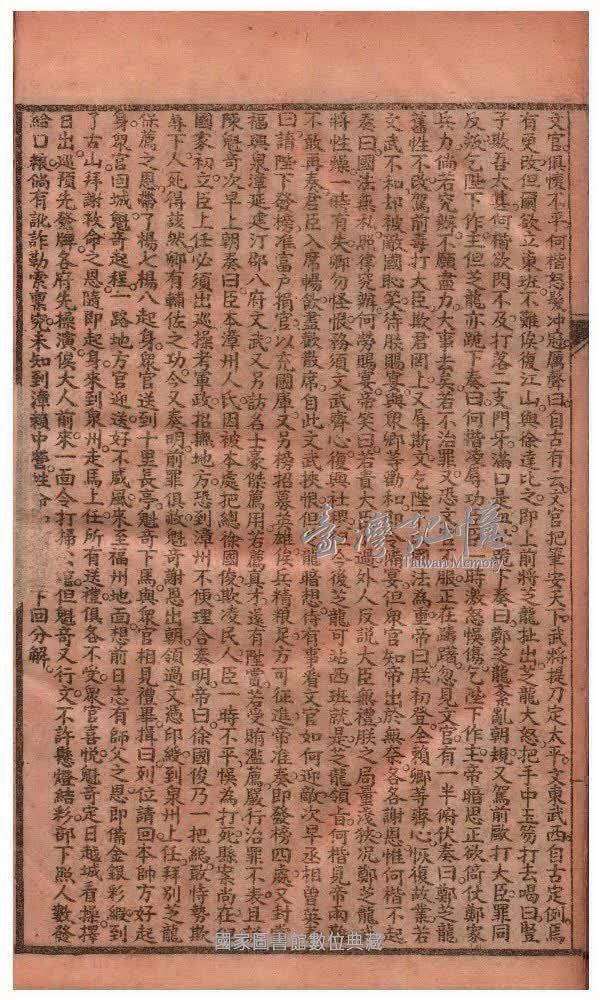 文官俱懷不平何楷怒髮冲冠厲聲曰自古有云文官把筆安天下武將提刀定太平文東武西自古定例焉
有更改但爾欲立東班不難俟復江山與徐達比之即上前將芝龍扯出芝龍大怒把手中玉笏打去喝曰豎
子敢吾太甚何楷欲閃不及打落一支門牙滿口是血跪下奏曰鄭芝龍紊亂朝規又駕前毆打大臣罪同
反叛乞陛下作主但芝龍亦跪下奏曰何楷凌辱功臣一時激怒悞傷乞陛下作主帝暗思正欲倚仗鄭家
兵力倘若究辦不願盡力大事去矣若不治罪又恐文官不服正在躊躇忽見文官有一半俯伏奏曰鄭芝龍
舊性不改駕前毒打大臣欺君罔上又辱斯文乞陛下國法為重帝曰朕初登全賴卿等齊心恢復故業若
文武不和却被敵國恥笑待朕賜宴與眾卿等勸和即大備宴但眾官知帝出於無奈各各謝恩惟何楷不起
奏曰國法無私照律究辦何勞賜宴帝笑曰若責大臣過外人反說大臣無禮朕之局量淺狹况鄭芝龍
將性燥一時有失卿勿怪恨務須文武齊心復興社稷今後芝龍可站西班就是芝龍領旨何楷見帝兩
不敢再奏君臣入席暢飲盡歡散席自此文武挾恨但芝龍暗想待有事看文官如何迎敵次早丞相曾英
曰請陛下發榜准富戶捐官以充國庫又另榜招募英雄俟兵精粮足方可征進帝准奏即發榜四處又封
福興泉漳延建汀邵八府文武又另訪名士豪傑薦用若薦真才遂有陞賞若受賄濫薦嚴行治罪不表且
陳魁奇次早上朝奏曰臣本漳州人氏因被本處把總徐國俊欺凌民人臣一時不平悞為打死縣案尚在
國家初立臣上任必須出巡操考軍政招撫地方恐到漳州不便理合奏明帝曰徐國俊乃一把總敢恃勢欺
辱下人死得該然卿有輔佐之功今又奏明前罪俱赦魁奇謝恩出朝領過文憑印綬到泉州上任拜別芝龍
保薦之恩帶了楊七楊八起身眾官送到十里長亭魁奇下馬與眾官相見禮畢揖曰列位請回本帥方好起
身眾官回城魁奇起程一路地方官迎送好不威風來至福州地面想前日志有師父之恩即備金銀彩緞到
了古山拜謝救命之恩隨即起身來到泉州走馬上任所有送禮俱各不受眾官喜悅魁奇定日越城看操擇
日出巡預先發牌各府先操演俟大人前來一面令打掃官但魁奇又行文不許懸燈結彩部下照人數發
給口粮倘有訛詐勒索稟究未知到漳賴中營性命下回分解
臺灣記憶
Taiwan Memory
國家圖書館數位典藏